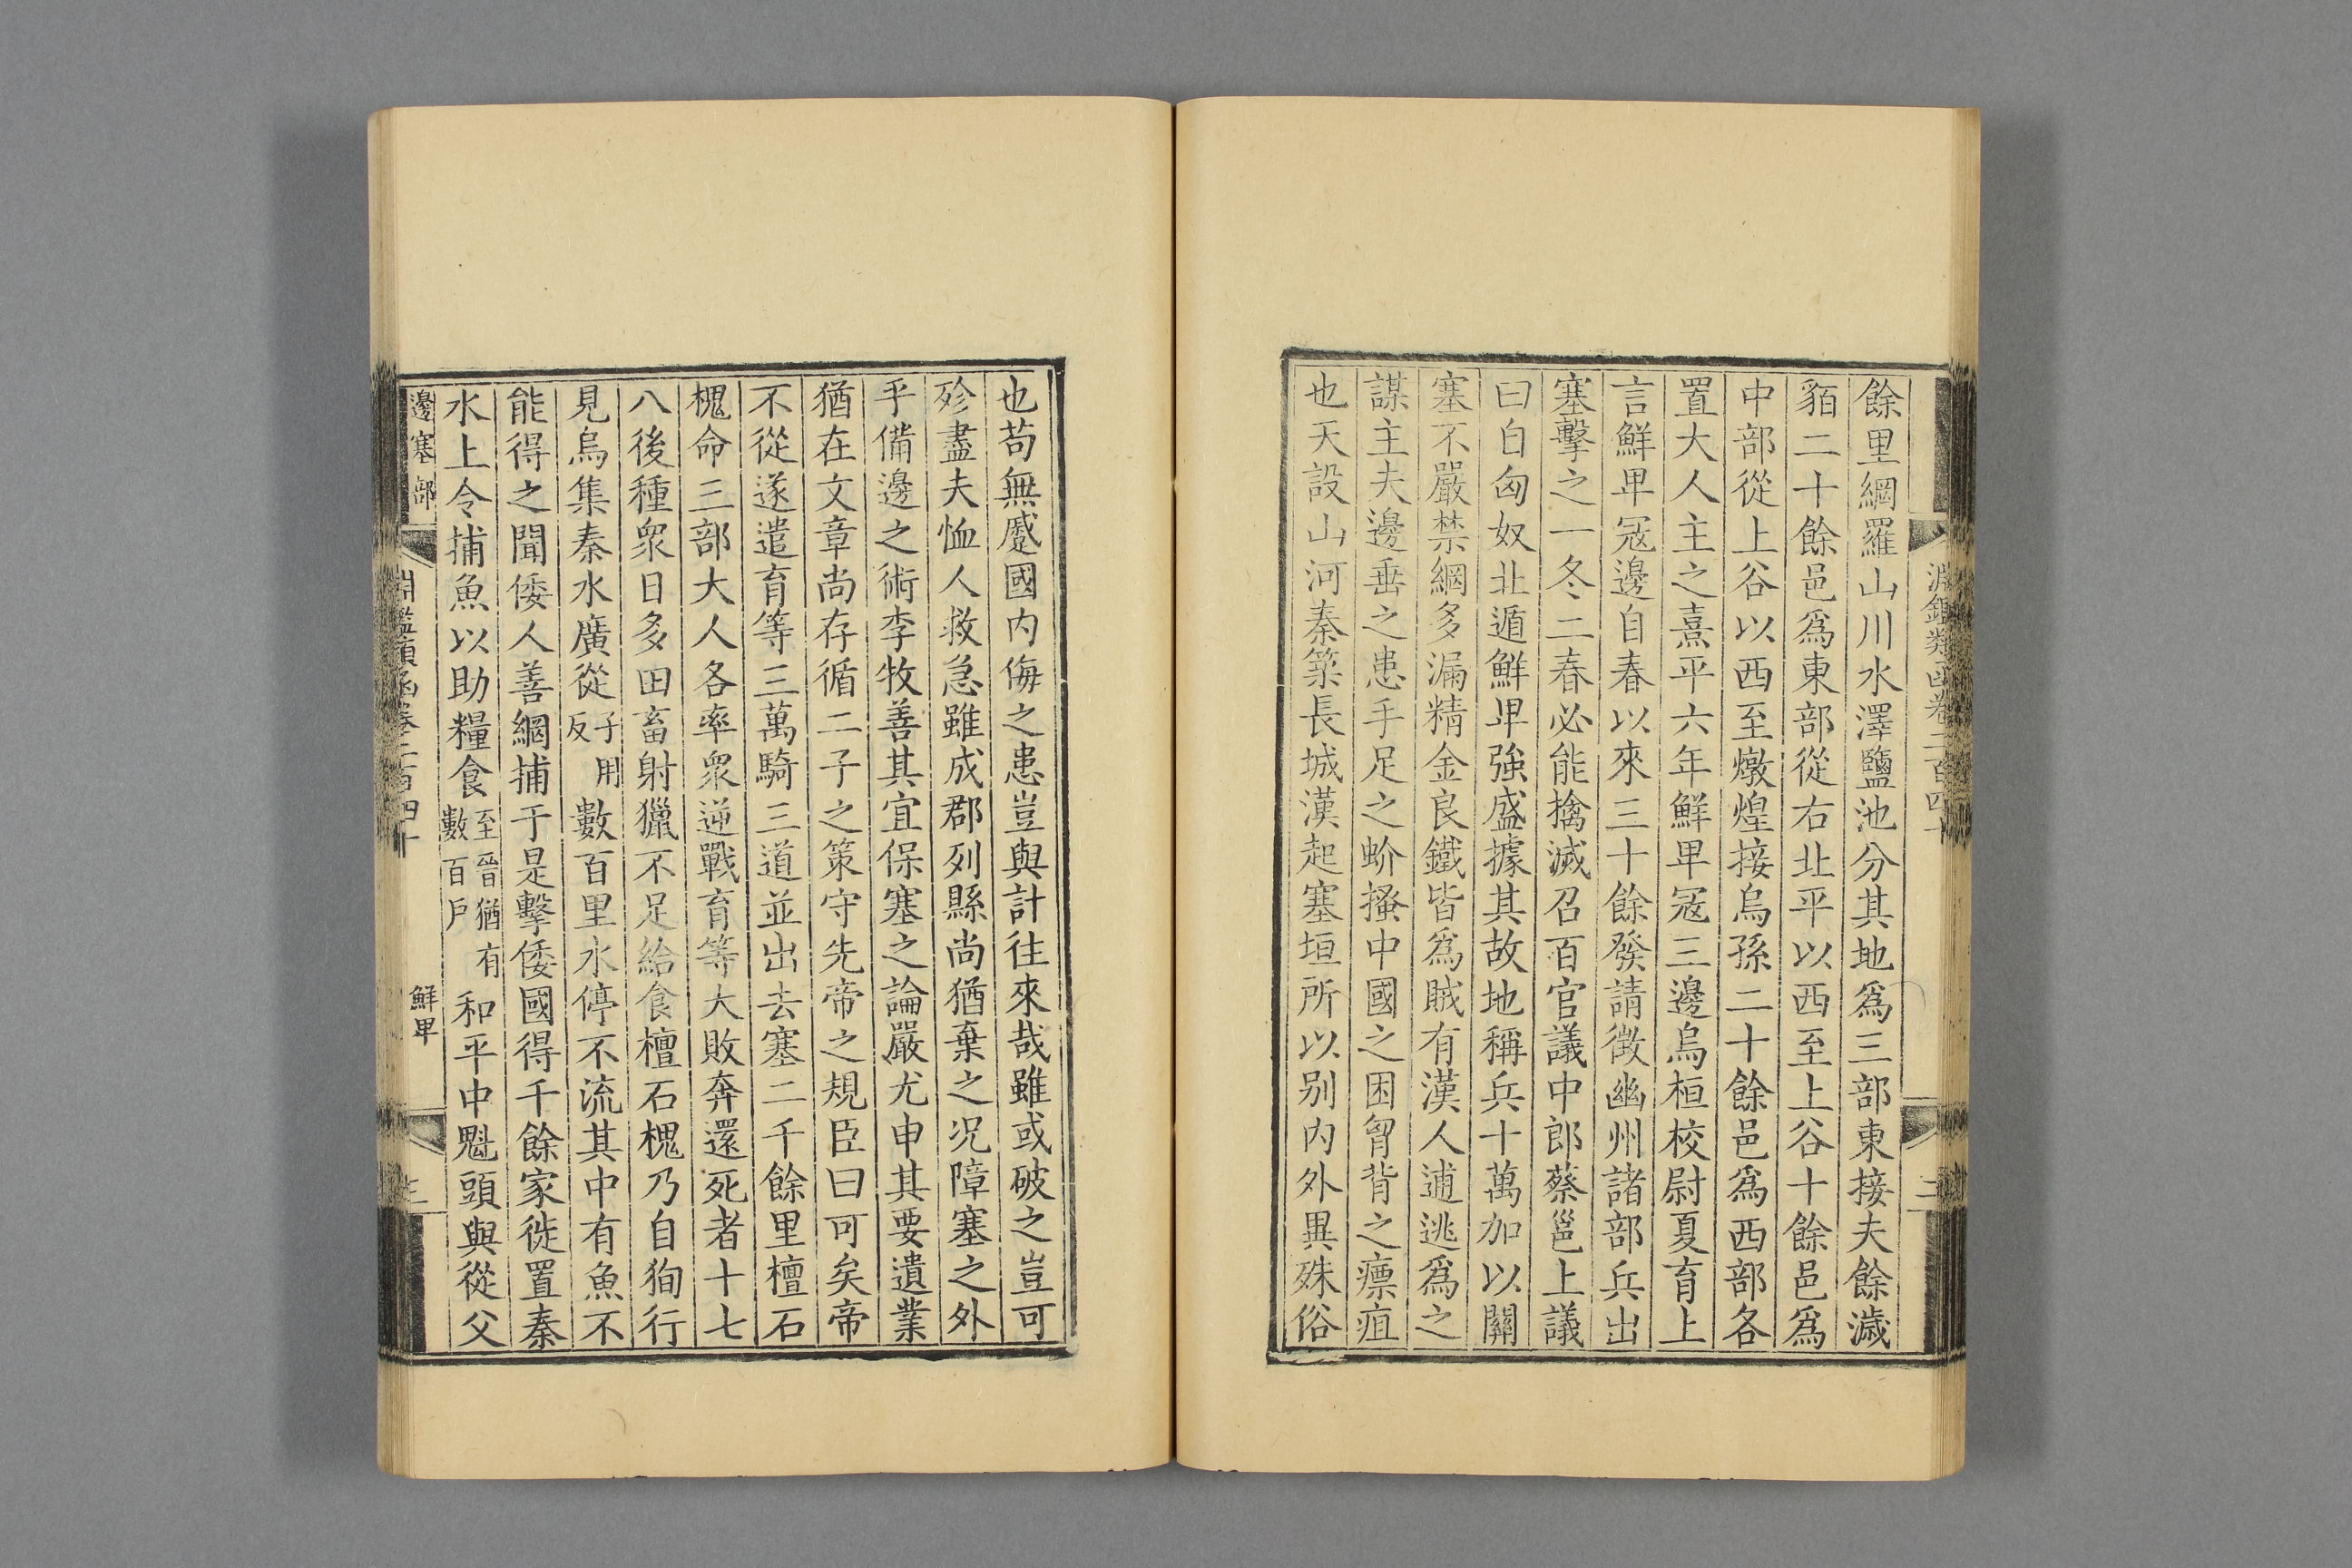 淵鑑類函卷二百四十
餘里網羅山川水澤鹽池分其地爲三部東接夫餘濊
貊二十餘邑爲東部從右北平以西至上谷十餘邑爲
中部從上谷以西至燉煌接烏孫二十餘邑爲西部各
置大人主之熹平六年鮮卑冦三邊烏桓校尉夏育上
言鮮卑冦邊自春以來三十餘發請徴幽州諸部兵出
塞擊之一冬二春必能擒滅召百官議中郎蔡邕上議
曰自匈奴北遁鮮卑強盛據其故地稱兵十萬加以關
塞不嚴禁網多漏精金良鐵皆爲賊有漢人逋逃爲之
謀主夫邊垂之患手足之蚧搔中國之困胷背之瘭疽
也天設山河秦築長城漢起塞垣所以别内外異殊俗
也苟無蹙國内侮之患豈與計往來哉雖或破之豈可
殄盡夫恤人救急雖成郡列縣尚猶棄之况障塞之外
乎備邊之術李牧善其宜保塞之論嚴尤申其要遺業
猶在文章尚存循二子之策守先帝之規臣曰可矣帝
不從遂遣育等三萬騎三道並出去塞二千餘里檀石
槐命三部大人各率衆逆戰育等大敗奔還死者十七
八後種衆日多田畜射獵不足給食檀石槐乃自狥行
見烏集秦水廣從子用反數百里水停不流其中有魚不
能得之聞倭人善網捕于是擊倭國得千餘家徙置秦
水上令捕魚以助糧食至晉猶有數百户和平中魁頭與從父
邊塞部
淵鑑類函卷二百四十
鮮卑
三